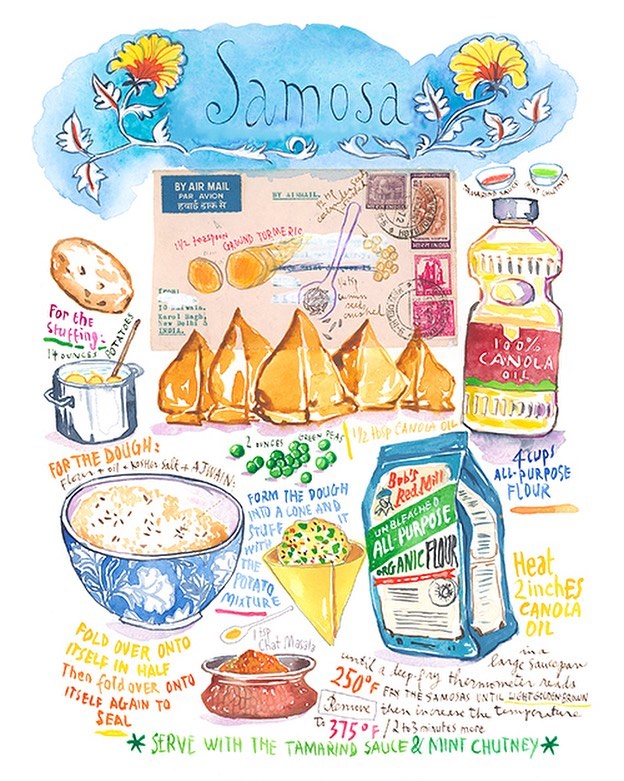 Samosa
BY AIR MAIL
PAR AVION
हवाई डाक से
BY AIRMAIL.
TAMARIND SAUCE
MINT CHUTNEY
1½ teaspoon
GROUND TURMERIC
cumin
seeds
crushed
From:
10
Karol Bagh,
New Delhi 5
INDIA.
For the
Stuffing:
14 OUNCES POTATOES
100%
CANOLA
OIL
1½ tbsp CANOLA OIL
2 OUNCES GREEN PEAS
FOR THE DOUGH:
Flour + oil + kosher salt + AJWAIN:
4 cups
ALL-PURPOSE
FLOUR
Bob's
Red Mill
UNBLEACHED
ALL-PURPOSE
ORGANIC FLOUR
FORM THE DOUGH
INTO A CONE AND
STUFF IT
WITH
THE
POTATO
MIXTURE
1 tsp
Chat Masala
FOLD OVER ONTO
ITSELF IN HALF
Then fold over ONTO
ITSELF AGAIN TO
SEAL
Heat
2 inches
CANOLA
OIL
in a
large saucepan
until a deep-fry thermometer reads
250°F FRY THE SAMOSAS UNTIL LIGHT GOLDEN BROWN
Remove, then increase the temperature
To 375°F / 2 to 3 minutes more
*SERVE WITH THE TAMARIND SAUCE & MINT CHUTNEY*